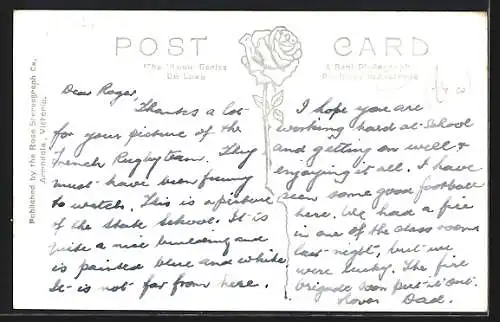 POST CARD
The "Rose Series"
De Luxe
A Real Photograph
Published by the Rose Stereograph Co.,
Armadale, Victoria.
Dear Roger,
Thanks a lot
for your picture of the
French Rugby team. They
must have been funny
to watch. This is a picture
of the State School. It is
quite a nice building and
is painted blue and white.
It is not far from here.
I hope you are
working hard at school
and getting on well &
enjoying it all. I have
seen some good football
here. We had a fire
in one of the class rooms
last night, but we
were lucky. The fire
brigade soon put it out.
Love Dad.